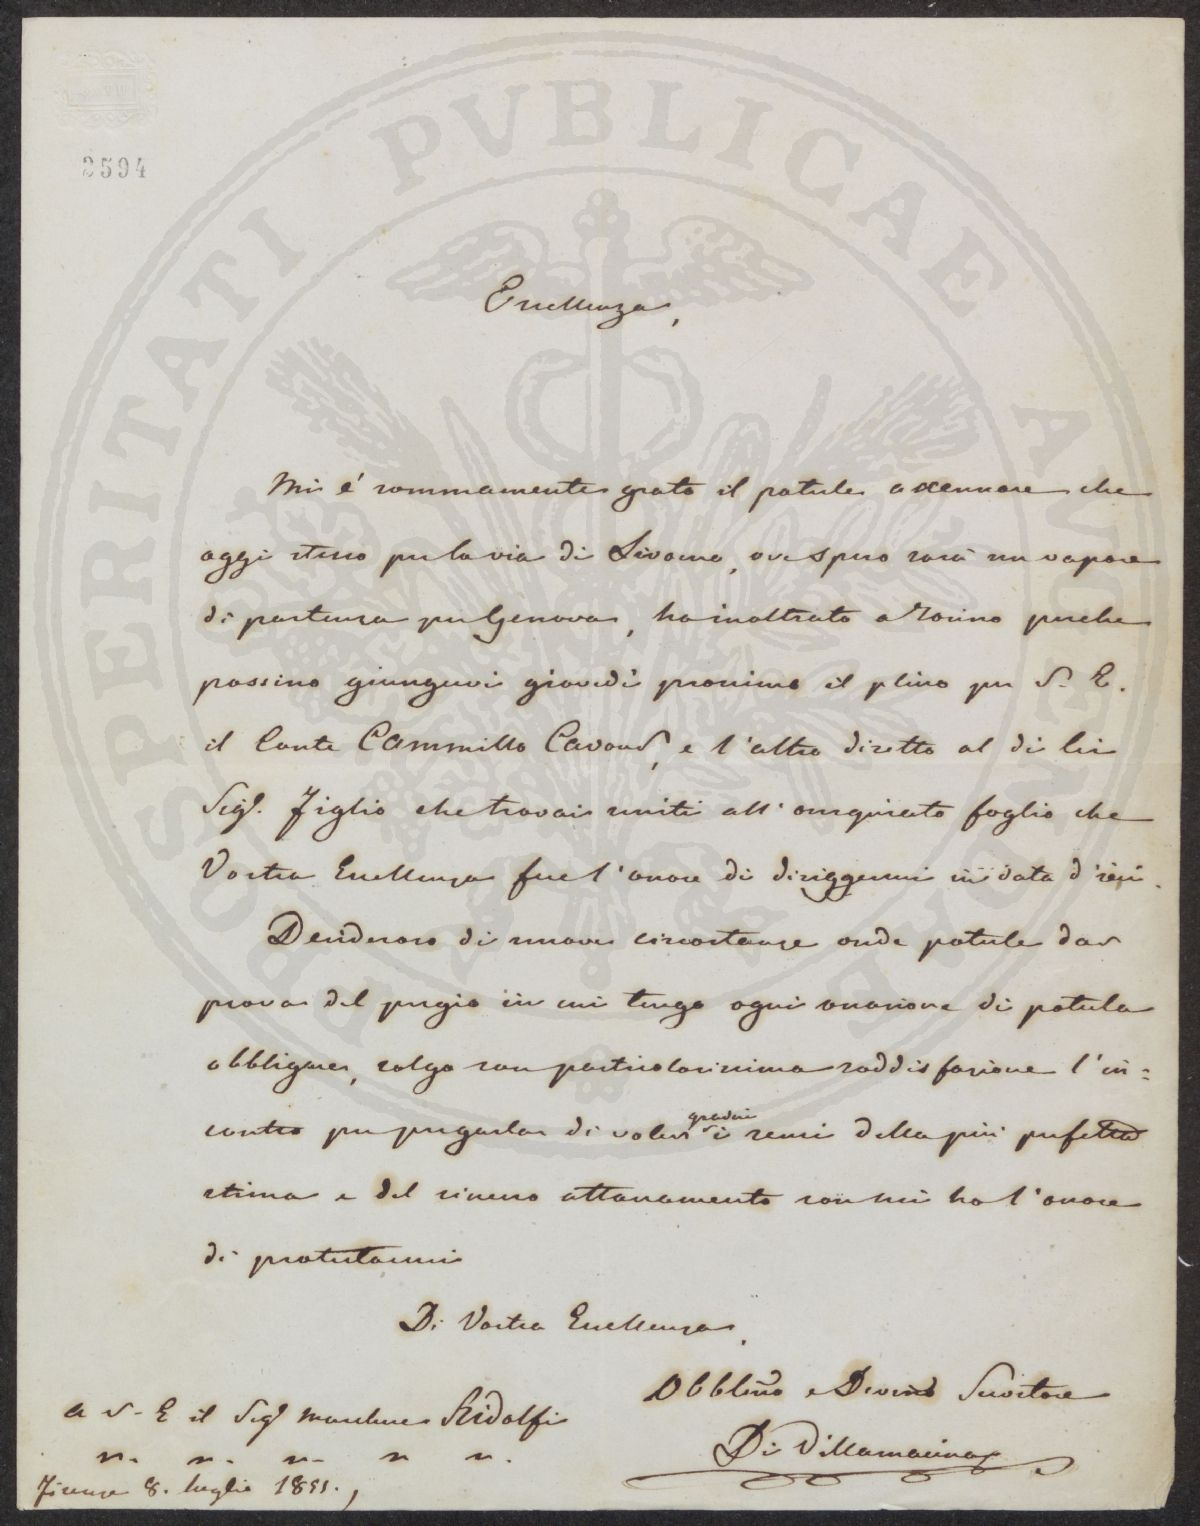 PROSPERITATI PVBLICAE AVGENDAE
2594
Eccellenza,
Mi è sommamente grato il poterle accennare che
oggi stesso per la via di Livorno, ove spero sarà un vapore
di partenza per Genova, ho inoltrato a Torino perche
possino giungervi giovedì prossimo il plico per S. E.
il Conte Cammillo Cavour, e l'altro diretto al di lei
Sigr. Figlio che trovai uniti all'ossequiato foglio che
Vostra Eccellenza fece l'onore di diriggermi in data d'ieri.
Desideroso di nuove circostanze onde poterle dar
prova del pregio in cui tengo ogni occasione di poterla
obbligare, colgo con particolarissima soddisfazione l'in=
contro per pregarla di voler gradire i sensi della più perfetta
stima e del sincero attaccamento con cui ho l'onore
di protestarmi
Di Vostra Eccellenza,
Obblmo e Devmo Servitore
Di Villamarina
A S. E il Sigr Marchese Ridolfi
n. n. n. n n.
Firenze 8. luglio 1851.